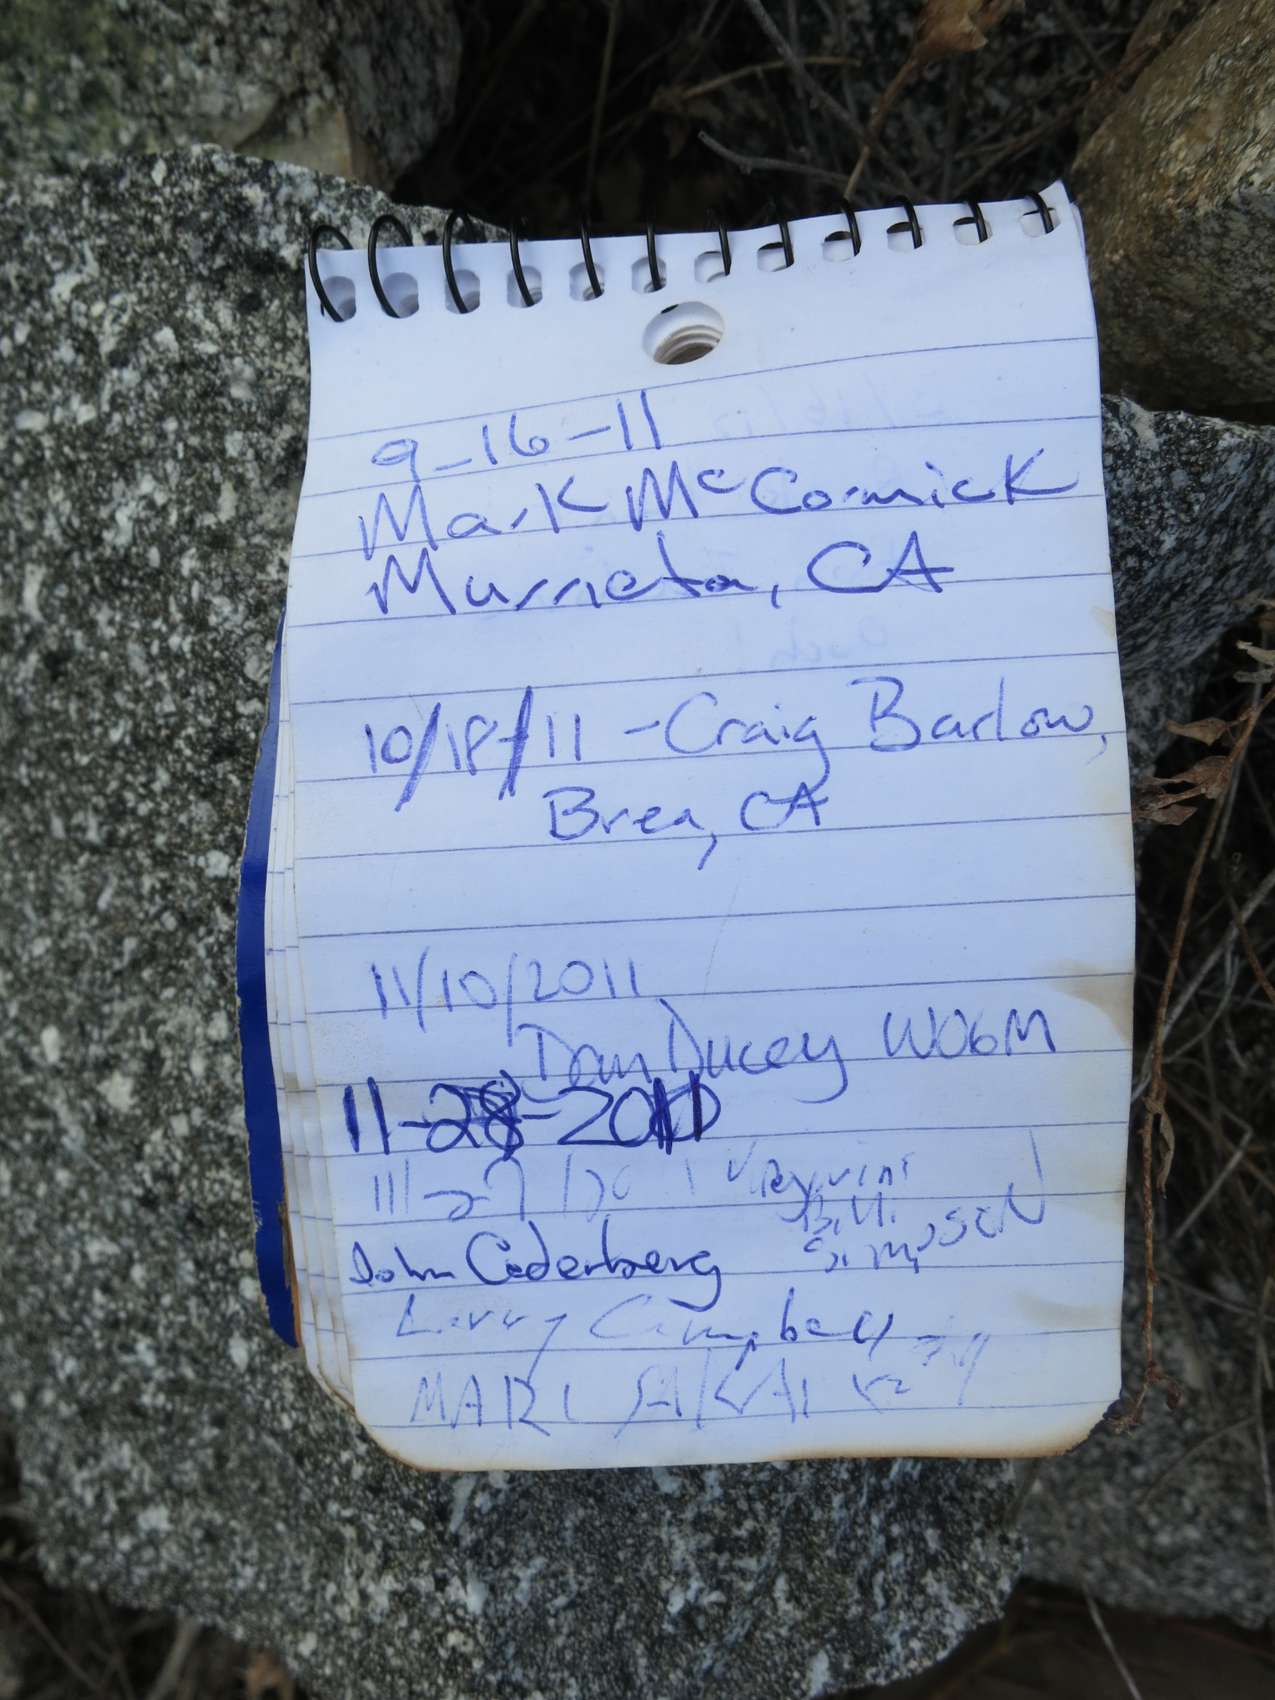 9-16-11
Mark McCormick
Murrieta, CA
10/18/11 - Craig Barlow,
Brea, CA
11/10/2011
Dan Ducey WO6M
11-28-2010
John Cederberg
Bill
Simpson
Larry Campbell
MARI SAKAI